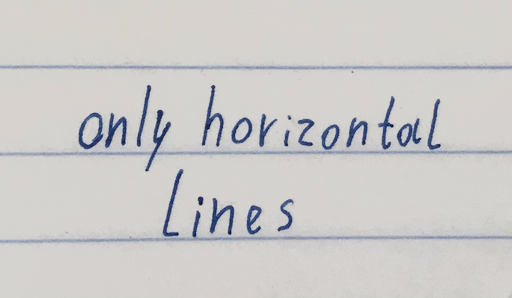 only horizontal
Lines